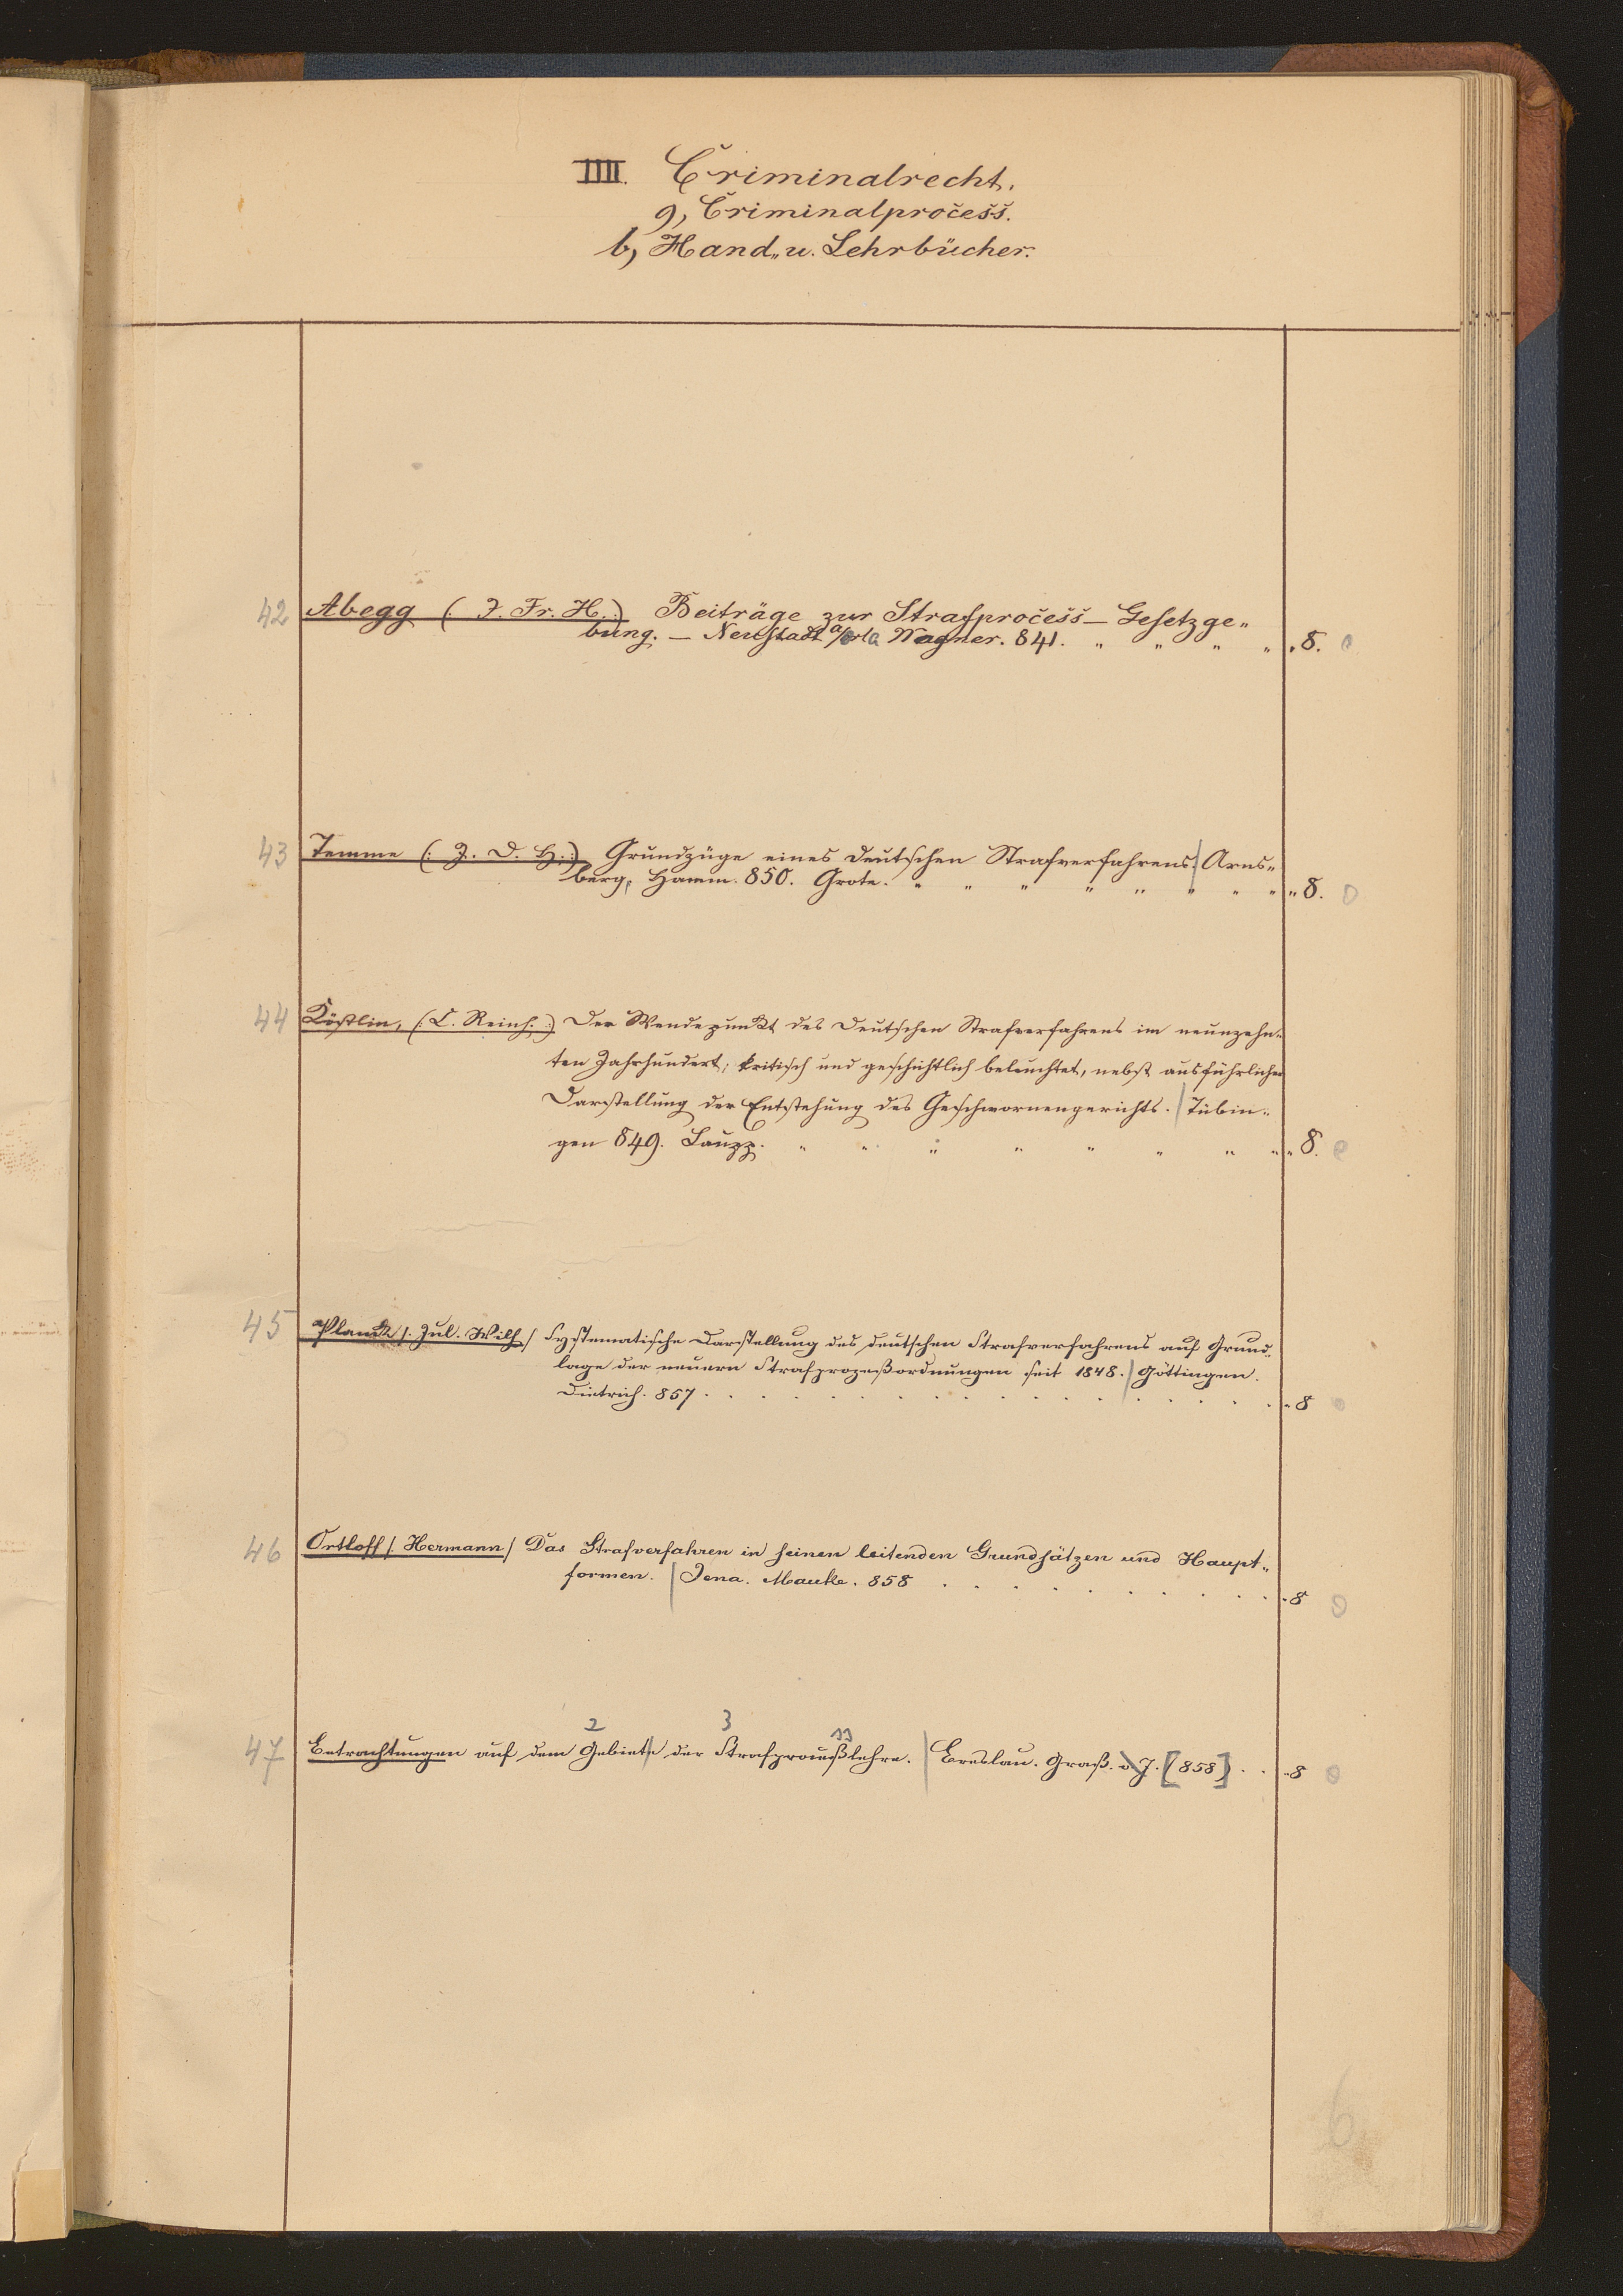 IIII. Criminalrecht.
9, Criminalprocess.
b, Hand„ u. Lehrbücher.
42 Abegg (: J. Fr. H. :) Beiträge zur Strafprocess-Gesetzge„
bung. — Neustadt a/Orla Wagner. 841. „ „ „ „ „ 8. 0
43 Temme (: J. D. H. :) Grundzüge eines deutschen Strafverfahrens. Arns„
berg, Hamm. 850. Grote. „ „ „ „ „ „ „ „ „ 8. 0
44 Köstlin, (: C. Reinh. :) Der Wendepunkt des deutschen Strafverfahrens im neunzehn„
ten Jahrhundert; kritisch und geschichtlich beleuchtet, nebst ausführlicher
Darstellung der Entstehung des Geschwornengerichts. Tübin„
gen 849. Laupp. „ „ „ „ „ „ „ „ „ 8. 0
45 Planck /. Jul. Wilh / Systematische Darstellung des deutschen Strafverfahrens auf Grund„
lage der neuern Strafprozeßordnungen seit 1848. / Göttingen.
Dietrich. 857 . . . . . . . . . . . . . . . . . „ 8 0
46 Ortloff /. Hermann / Das Strafverfahren in seinen leitenden Grundsätzen und Haupt„
formen. | Jena. Mauke. 858 . . . . . . . . . . „ 8 0
2 3 33
47 Betrachtungen auf dem Gebiete der Strafproceßlehre. | Breslau. Graß. o J. [858] . . „ 8 0
6